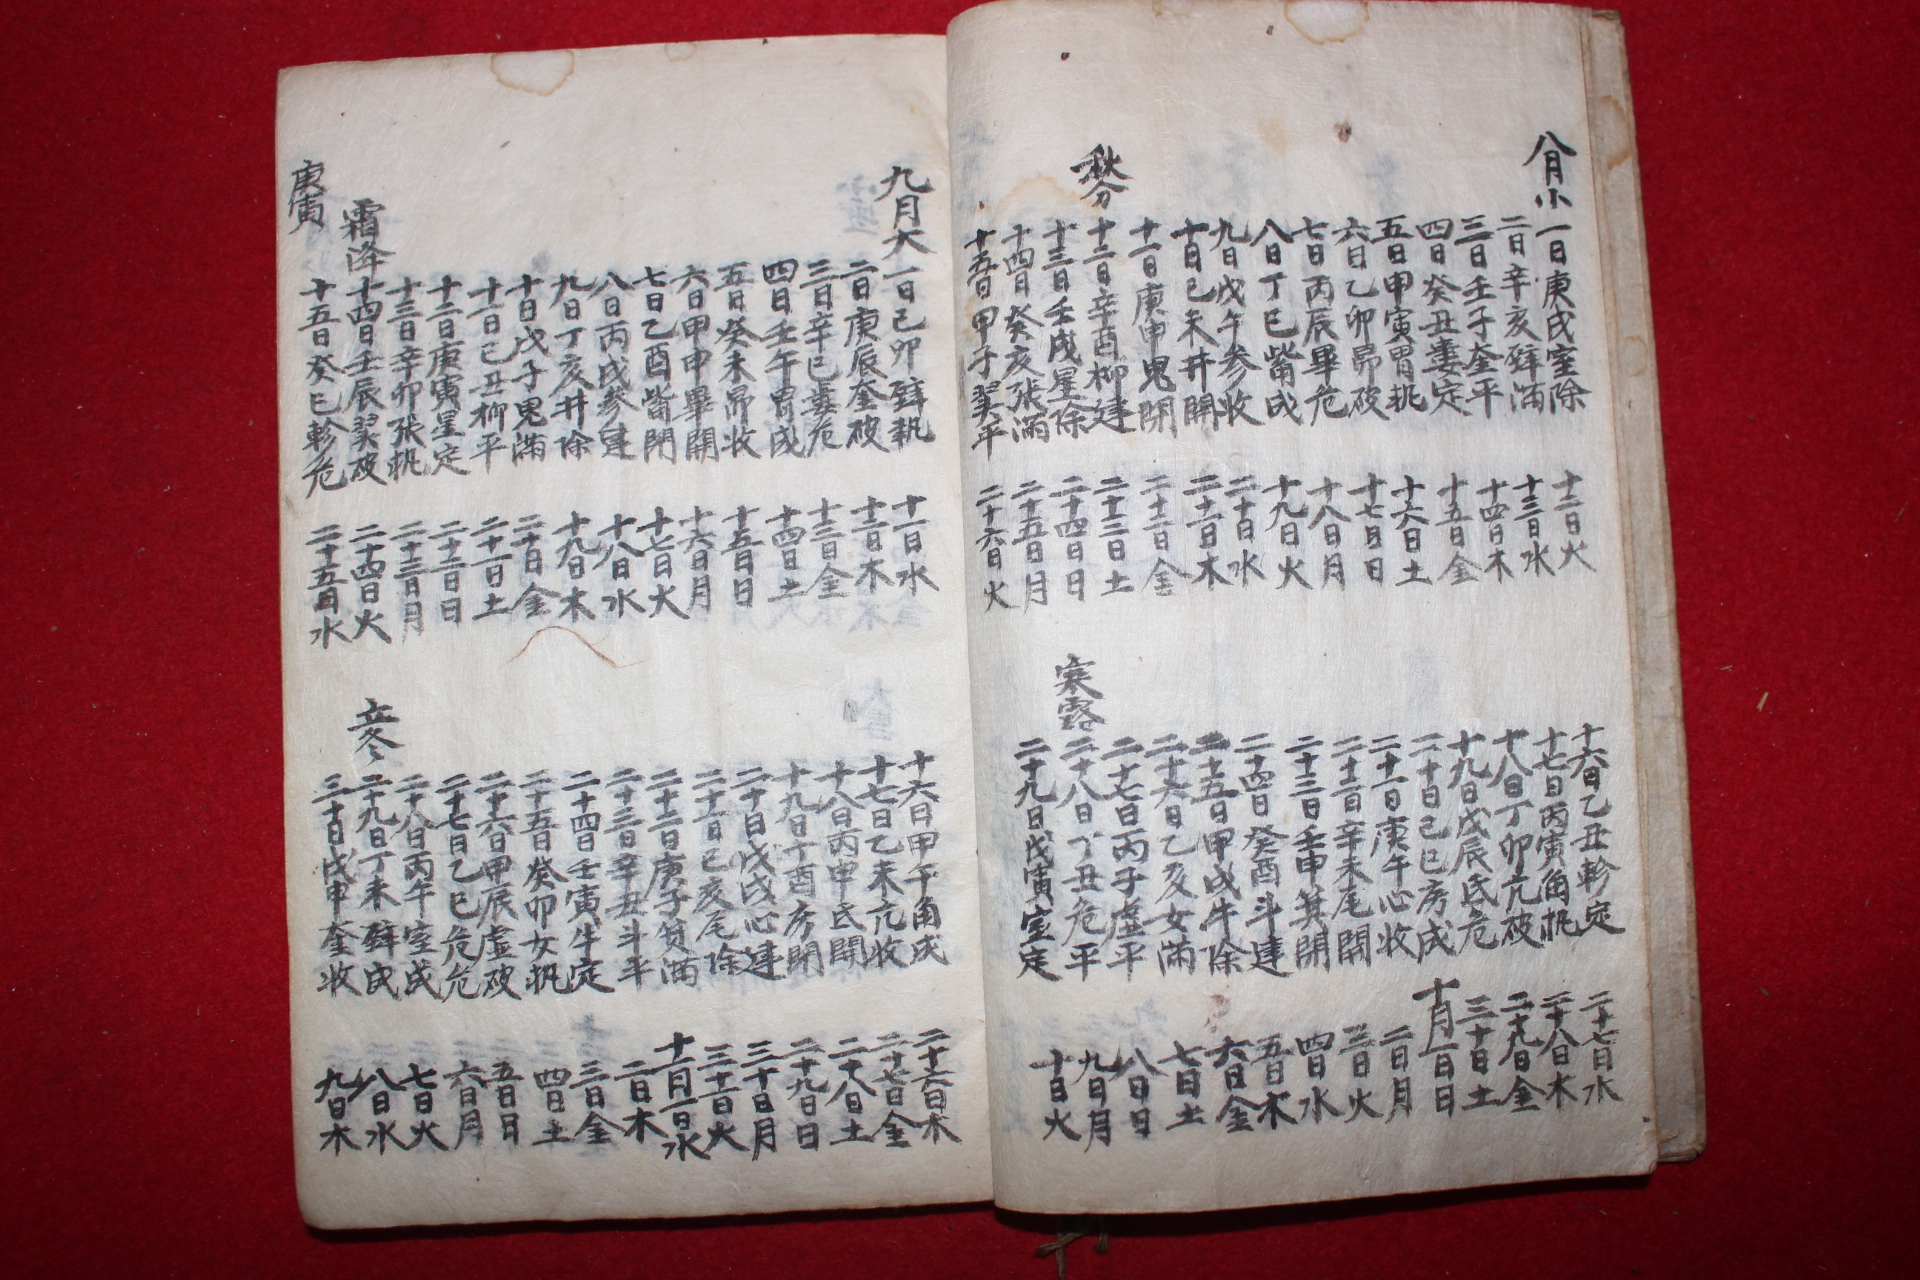 八月小
一日庚戌室除 十二日火
二日辛亥壁滿 十三日水
三日壬子奎平 十四日木
四日癸丑婁定 十五日金
五日甲寅胃執 十六日土
六日乙卯昴破 十七日日
七日丙辰畢危 十八日月
八日丁巳觜成 十九日火
九日戊午参收 二十日水
十日己未井開 二十一日木
十一日庚申鬼閉 二十二日金
秋分 十二日辛酉柳建 二十三日土
十三日壬戌星除 二十四日日
十四日癸亥張滿 二十五日月
十五日甲子翼平 二十六日火
十六日乙丑軫定 二十七日水
十七日丙寅角執 二十八日木
十八日丁卯亢破 二十九日金
十九日戊辰氐危 三十日土
二十日己巳房成 十月一日日
二十一日庚午心收 二日月
二十二日辛未尾開 三日火
二十三日壬申箕開 四日水
二十四日癸酉斗建 五日木
二十五日甲戌牛除 六日金
二十六日乙亥女滿 七日土
二十七日丙子虛平 八日日
寒露 二十八日丁丑危平 九日月
二十九日戊寅室定 十日火
九月大
一日己卯壁執 十一日水
二日庚辰奎破 十二日木
三日辛巳婁危 十三日金
四日壬午胃成 十四日土
五日癸未昴收 十五日日
六日甲申畢開 十六日月
七日乙酉觜閉 十七日火
八日丙戌参建 十八日水
九日丁亥井除 十九日木
十日戊子鬼滿 二十日金
十一日己丑柳平 二十一日土
十二日庚寅星定 二十二日日
十三日辛卯張執 二十三日月
霜降 十四日壬辰翼破 二十四日火
十五日癸巳軫危 二十五日水
庚寅
十六日甲午角成 二十六日木
十七日乙未亢收 二十七日金
十八日丙申氐開 二十八日土
十九日丁酉房閉 二十九日日
二十日戊戌心建 三十日月
二十一日己亥尾除 三十一日火
二十二日庚子箕滿 十一月一日水
二十三日辛丑斗平 二日木
二十四日壬寅牛定 三日金
二十五日癸卯女執 四日土
二十六日甲辰虛破 五日日
二十七日乙巳危危 六日月
二十八日丙午室成 七日火
立冬 二十九日丁未壁成 八日水
三十日戊申奎收 九日木